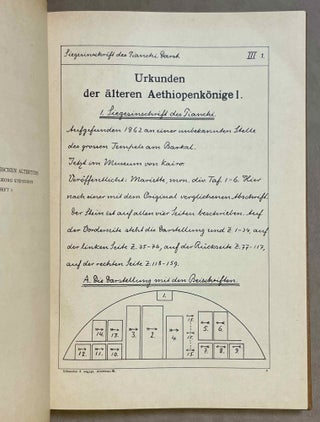 Siegesinschrift des Pianchi Darst. III 1.
Urkunden
der älteren Aethiopenkönige I.
1. Siegesinschrift des Pianchi.
Aufgefunden 1862 an einer unbekannten Stelle
des grossen Tempels am Barkal.
Jetzt im Museum von Kairo.
Veröffentlicht: Mariette, mon. div. Taf. 1-6. Hier
nach einer mit dem Original verglichenen Abschrift.
Der Stein ist auf allen vier Seiten beschrieben. Auf
der Vorderseite steht die Darstellung und Z. 1-34, auf
der linken Seite Z. 35-76, auf der Rückseite Z. 77-117,
auf der rechten Seite Z. 118-159.
A. Die Darstellung mit den Beischriften.
1.
14. 13. 3. 2. 4. 15. 5. 6.
12. 11. 10. 7. 8. 9.